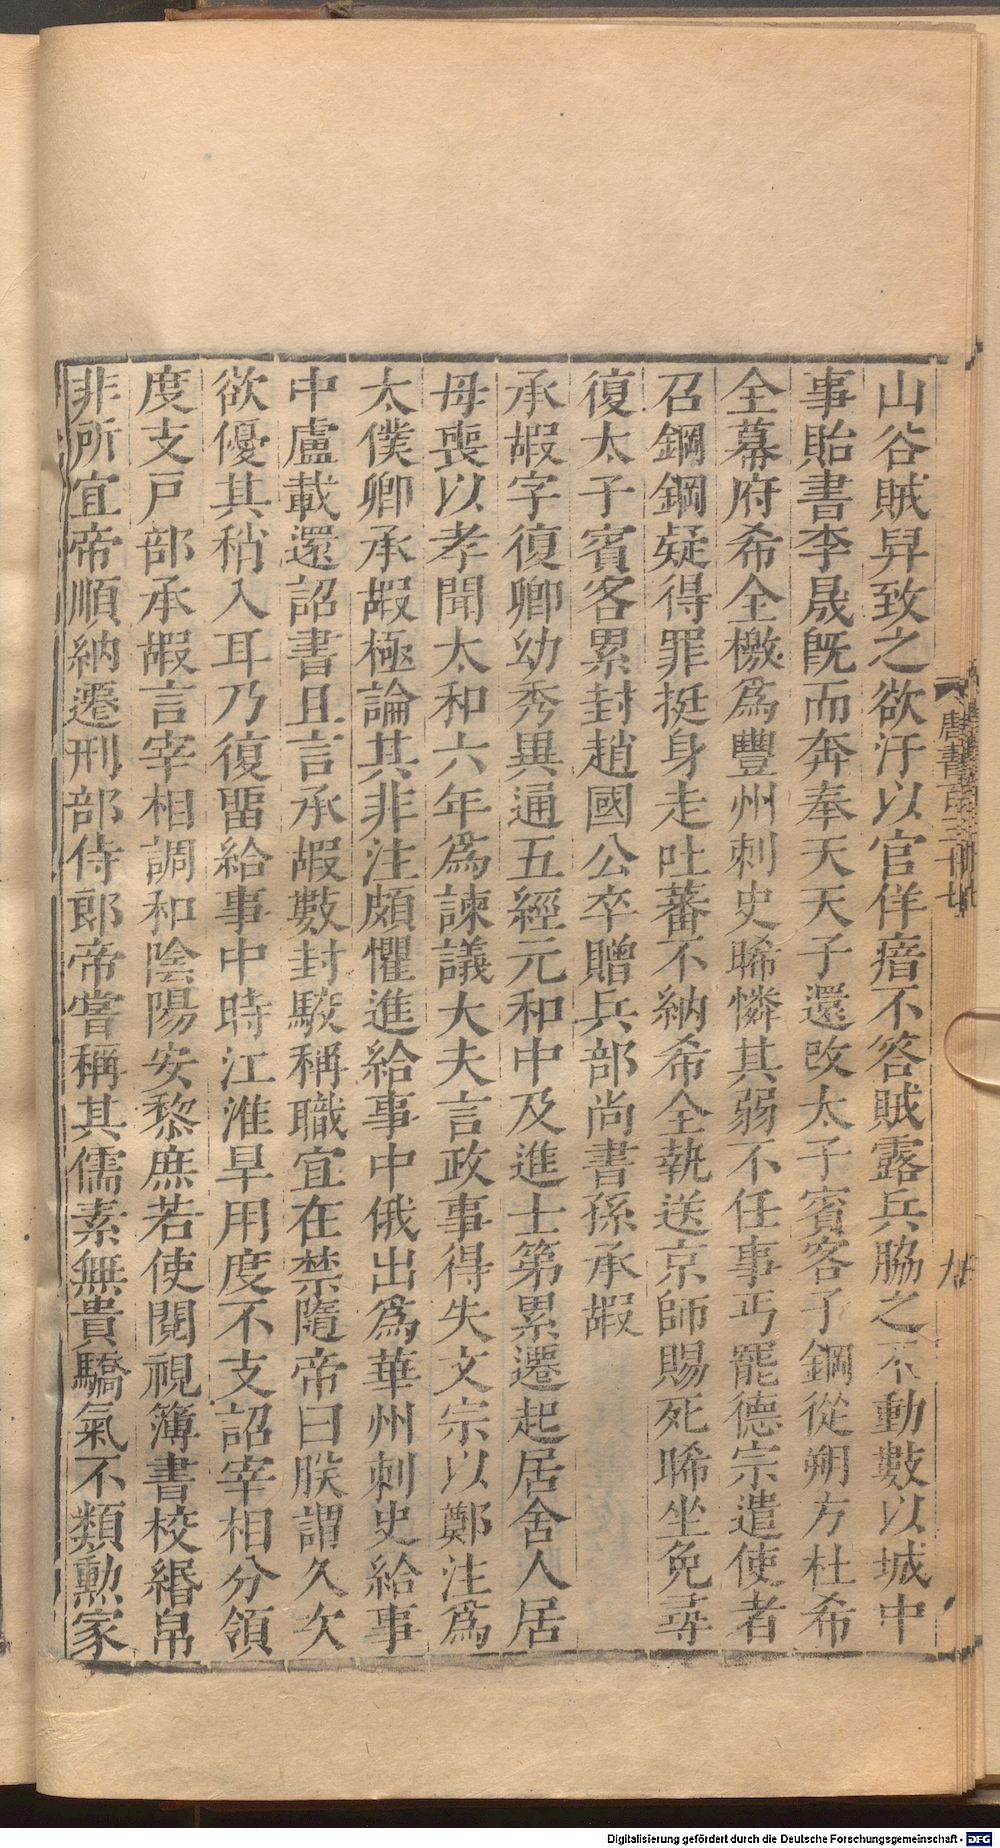 山谷賊舁致之欲汙以官佯瘖不答賊露兵脇之不動數以城中
事貽書李晟旣而奔奉天天子還改太子賓客子鋼從朔方杜希
全幕府希全檄爲豐州刺史晞憐其弱不任事丐罷德宗遣使者
召鋼鋼疑得罪挺身走吐蕃不納希全執送京師賜死晞坐免尋
復太子賓客累封趙國公卒贈兵部尚書孫承嘏
承嘏字復卿幼秀異通五經元和中及進士第累遷起居舍人居
母喪以孝聞太和六年爲諫議大夫言政事得失文宗以鄭注爲
太僕卿承嘏極論其非注頗懼進給事中俄出爲華州刺史給事
中盧載還詔書且言承嘏數封駮稱職宜在禁闥帝曰朕謂久次
欲優其稍入耳乃復畱給事中時江淮旱用度不支詔宰相分領
度支戸部承嘏言宰相調和陰陽安黎庶若使閱視簿書校緡帛
非所宜帝順納遷刑部侍郎帝嘗稱其儒素無貴驕氣不類勳家
Digitalisierung gefördert durch die Deutsche Forschungsgemeinschaft - DFG